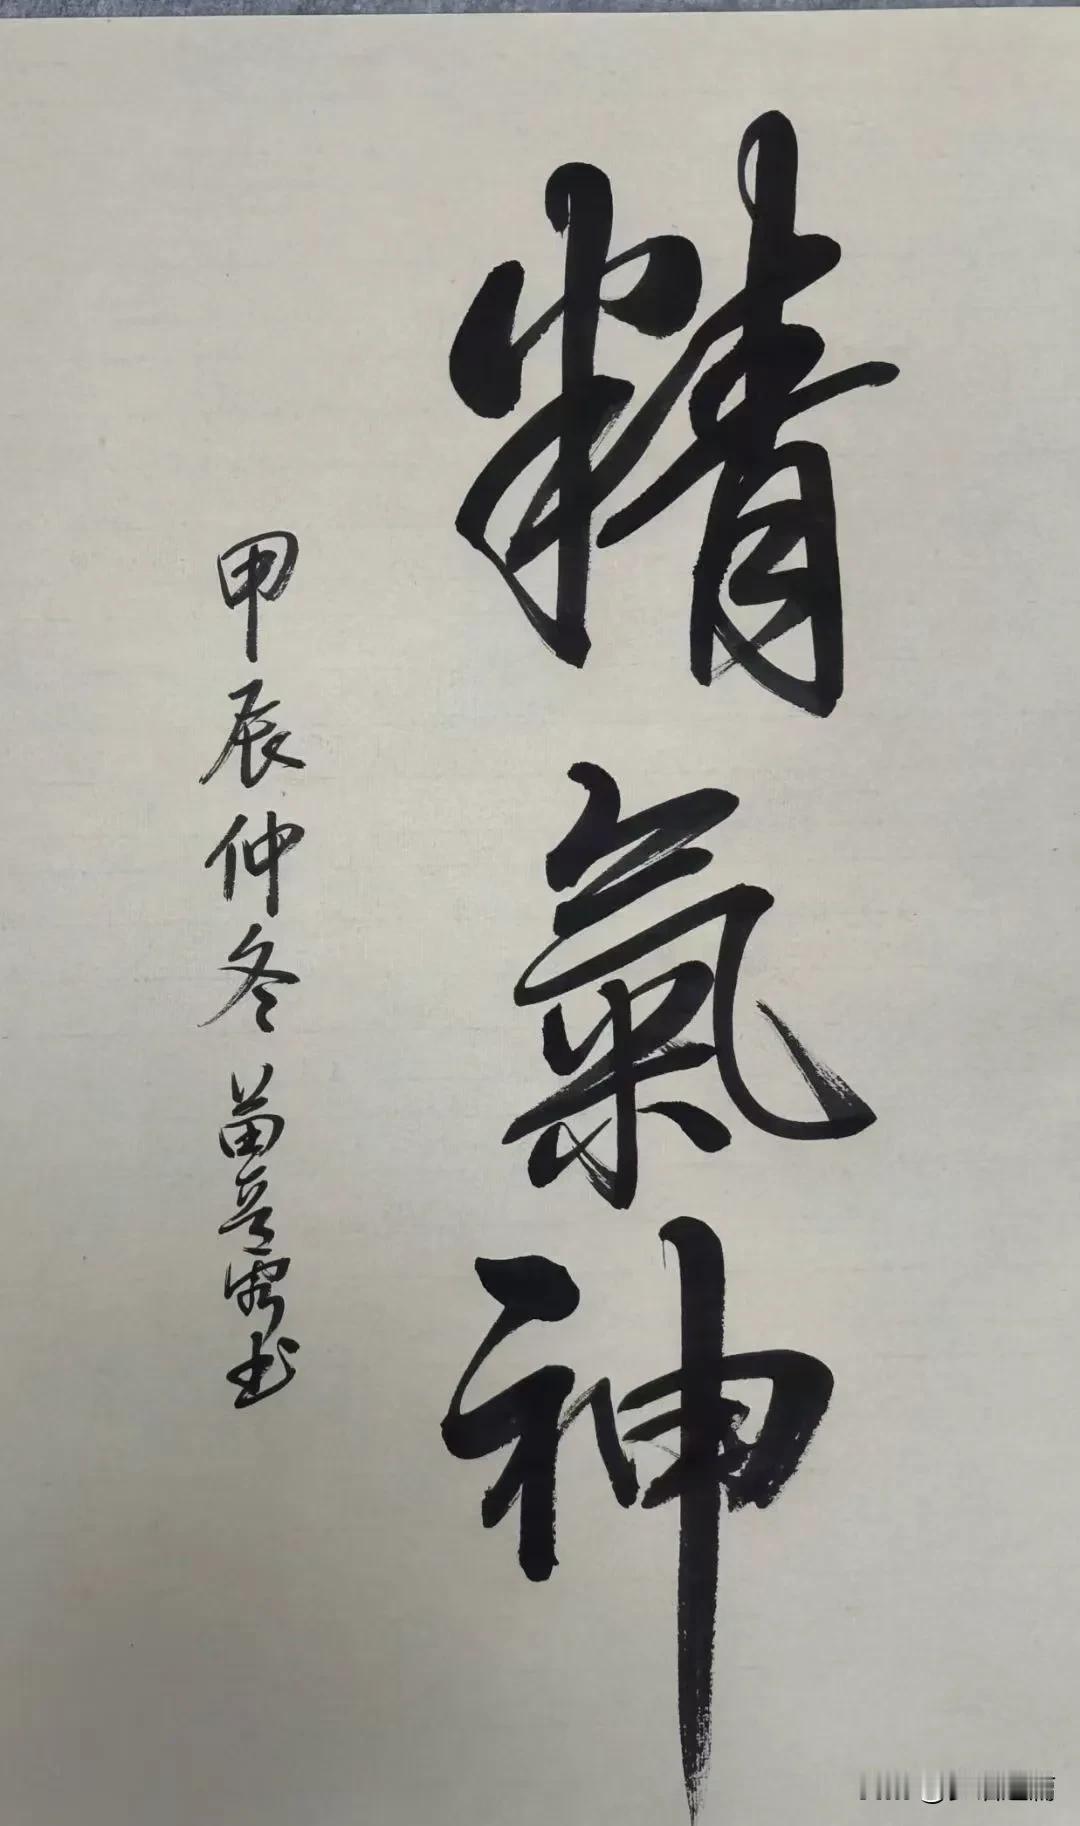 精氣神
甲辰仲冬苗
书